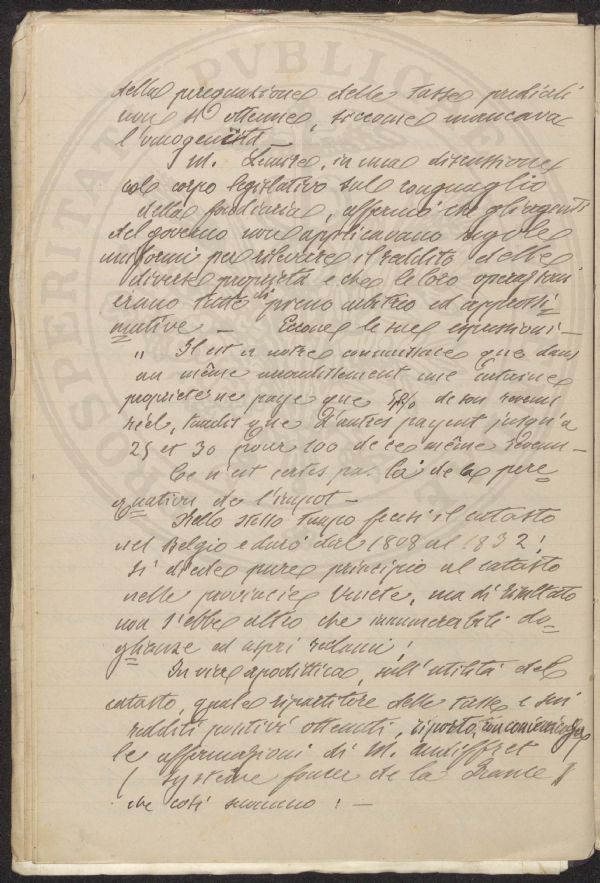 della perequazione delle tasse prediali
non si ottenne, siccome mancava
l'omogeneità
Il M. , in una discussione
col corpo legislativo sul conguaglio
della fondiaria, affermò che gli agenti
del governo non applicavano regole
uniformi per rilevare il reddito delle
diverse proprietà e che le loro operazioni
erano tutte di pieno arbitrio ed approssi-
mative — Eccone le sue espressioni —
" Il est à notre connaissance que dans
un même arrondissement une certaine
propriété ne paye que 5 p% de son revenu
réel, tandis que d'autres payent jusqu'à
25 et 30 pour 100 de ce même revenu —
Ce n'est certes pas là de la pere-
quation de l'impot —
Nello stesso tempo fecesi il catasto
nel Belgio e durò dal 1808 al 1832!
Si diede pure principio al catasto
nelle provincie Venete, ma di risultato
non s'ebbe altro che innumerabili do-
glianze ed aspri reclami!
In vice apodittica, sull'utilità del
catasto, quale ripartitore delle tasse e sui
redditi positivi ottenuti, riporto,
le affermazioni di M. Audiffret
( système foncier de la France )
che così suonano : —
PVBLIC
PROSPERITAT